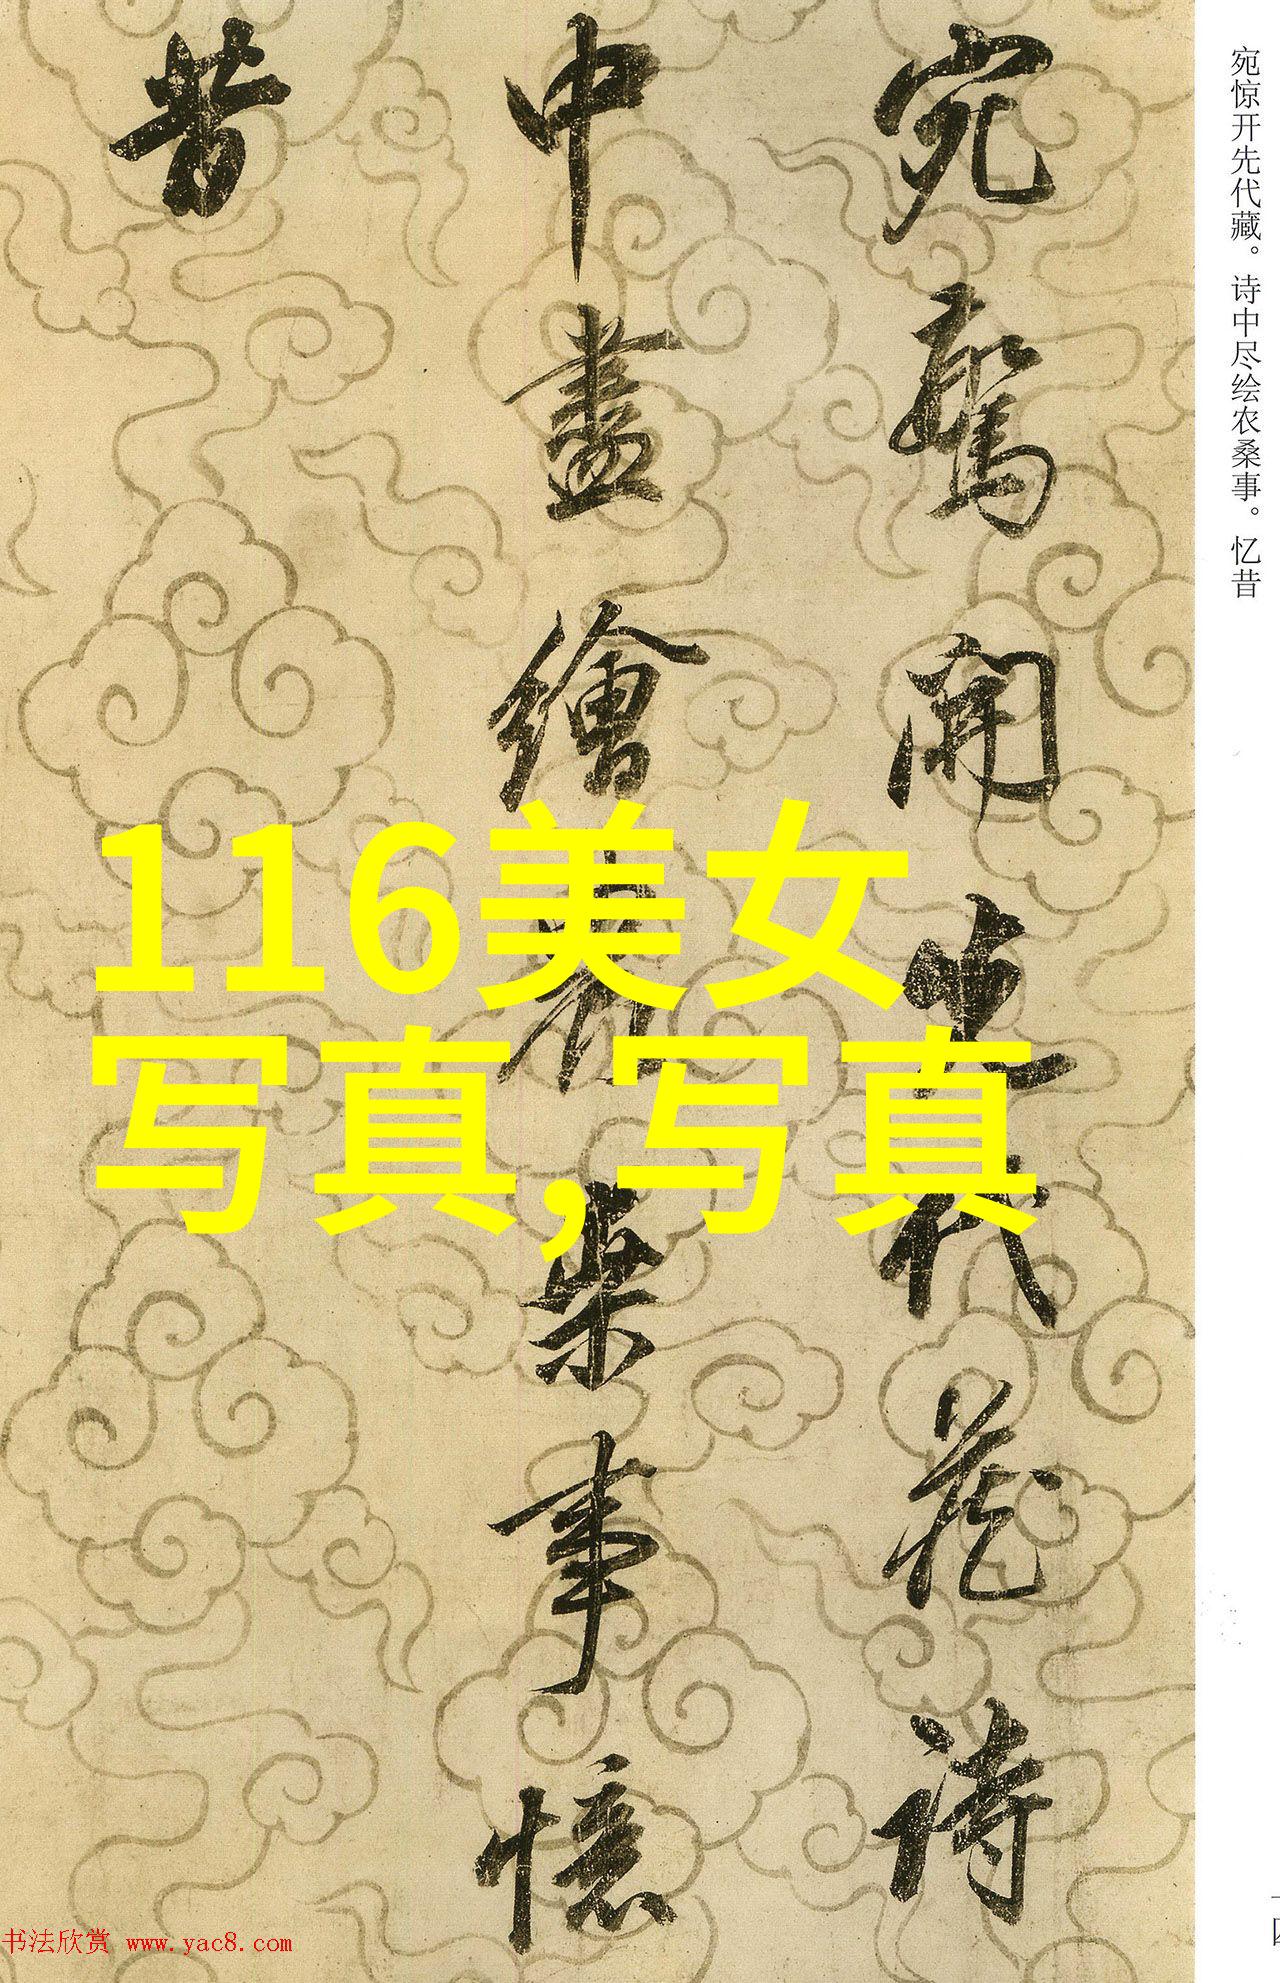 宛驚開先代藏诗
中盡繪農桒事憶
昔
宛惊开先代藏。诗中尽绘农桑事。忆昔
116美女
写真,写真
书法欣赏 www.yac8.com